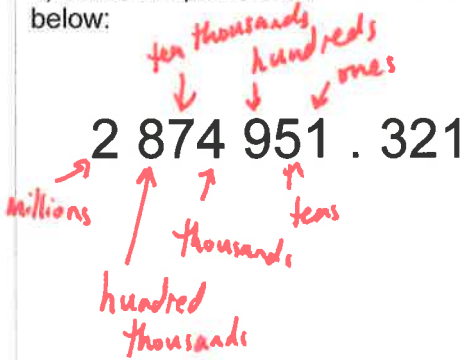 below:
ten thousands
hundreds
ones
2 874 951 . 321
millions
tens
thousands
hundred
thousands